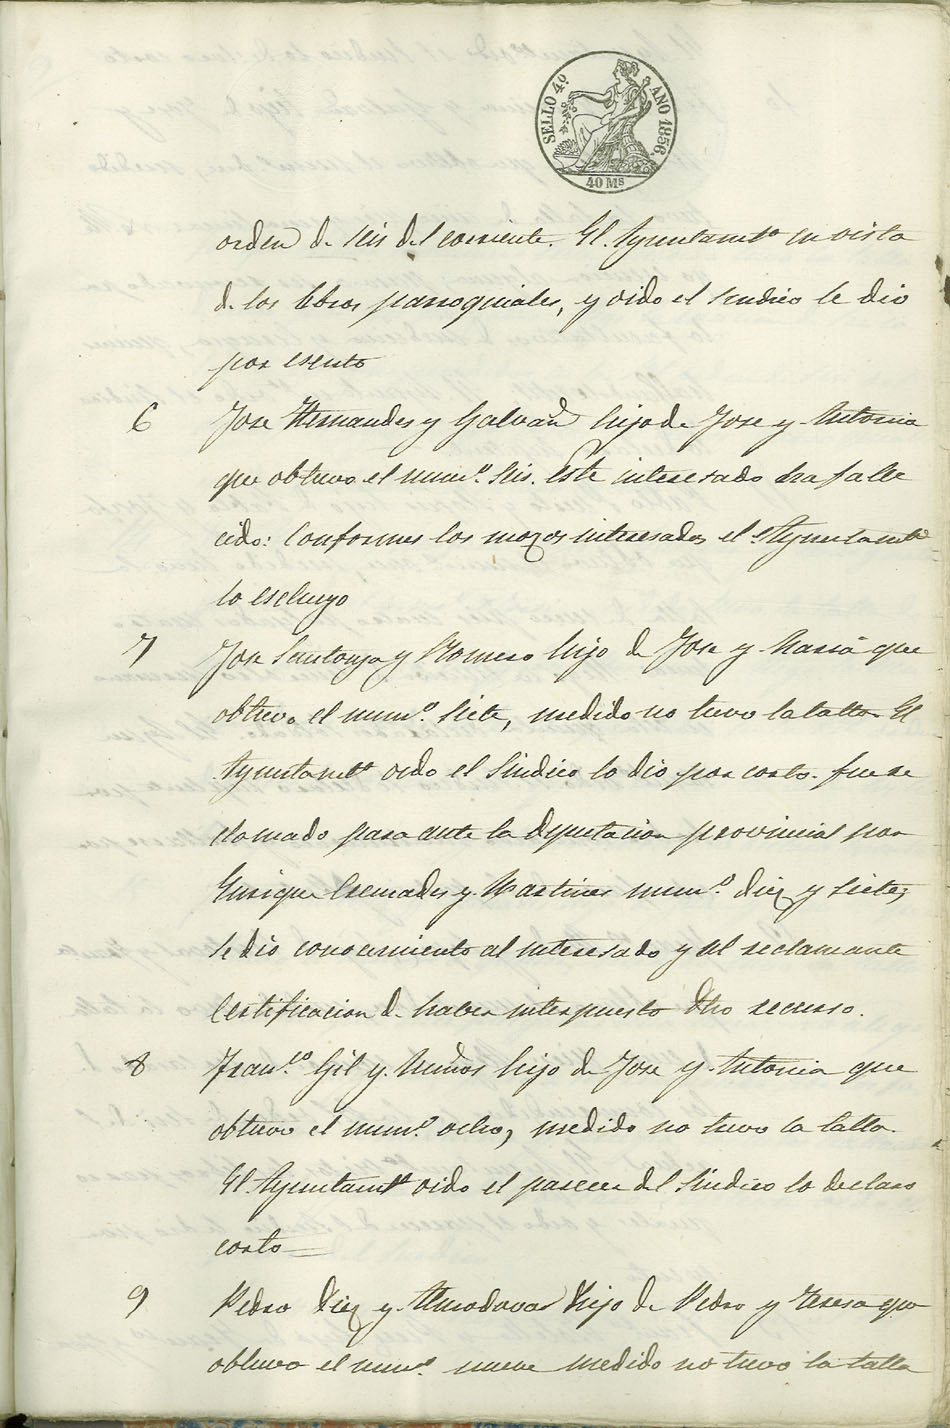 SELLO 4º AÑO 1856.
40 Ms
orden de seis del corriente. El Ayuntamto en vista
de los libros parroquiales, y oido el sindico le dio
por esento
6 Jose Hernandes y Galvañ hijo de Jose y Antonia
que obtuvo el numº. seis. Este interesado ha falle
cido: Conformes los mozos interesados el Ayuntamto
lo escluyo
7 Jose Santonja y Romero hijo de Jose y Maria que
obtuvo el numº. siete, medido no tuvo la talla. El
Ayuntamto oido el Sindico lo dio por corto. fue re
clamado para ante la diputacion provincial por
Enrique Cremades y Martines numº. diez y siete;
se dio conocimiento al interesado y al reclamante
Certificacion de haber interpuesto dho recurso.
8 Franco. Gil y Muños hijo de Jose y Antonia que
obtuvo el numº. ocho, medido no tuvo la talla.
El Ayuntamto oido el parecer del Sindico lo declaro
corto
9 Pedro Diez y Almodovar hijo de Pedro y Teresa que
obtuvo el numº. nueve medido no tuvo la talla